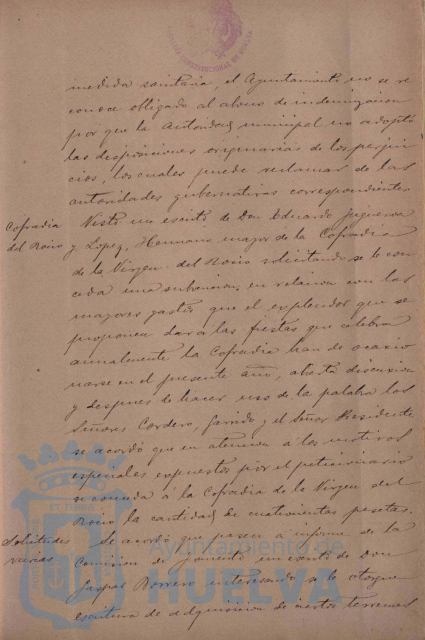 medida sanitaria, el Ayuntamiento no se re
conoce obligado al abono de indemnizacion
por que la Autoridad municipal no adoptó
las disposiciones originarias de los perjui
cios, los cuales puede reclamar de las
autoridades gubernativas correspondientes
Cofradia del Rocio
Visto un escrito de Don Eduardo Figueroa
y Lopez, Hermano mayor de la Cofradia
de la Virgen del Rocio solicitando se le con
ceda una subvencion en relacion con los
mayores gastos que el explendor que se
proponen dar á las fiestas que celebra
anualmente la Cofradia han de ocasio
narse en el presente año, abierta discusion
y despues de hacer uso de la palabra los
Señores Cordero, Garrido y el Señor Presidente
se acordó que en atencion á los motivos
especiales expuestos por el peticionario
se conceda á la Cofradia de la Virgen del
Rocio la cantidad de cuatrocientas pesetas.
Solicitudes varias
Se acordó que pasen á informe de la
Comision de Fomento un escrito de Don
Gaspar Borrero interesando se le otorgue
escritura de adquisicion de ciertos terrenos
Ayuntamiento de
HUELVA